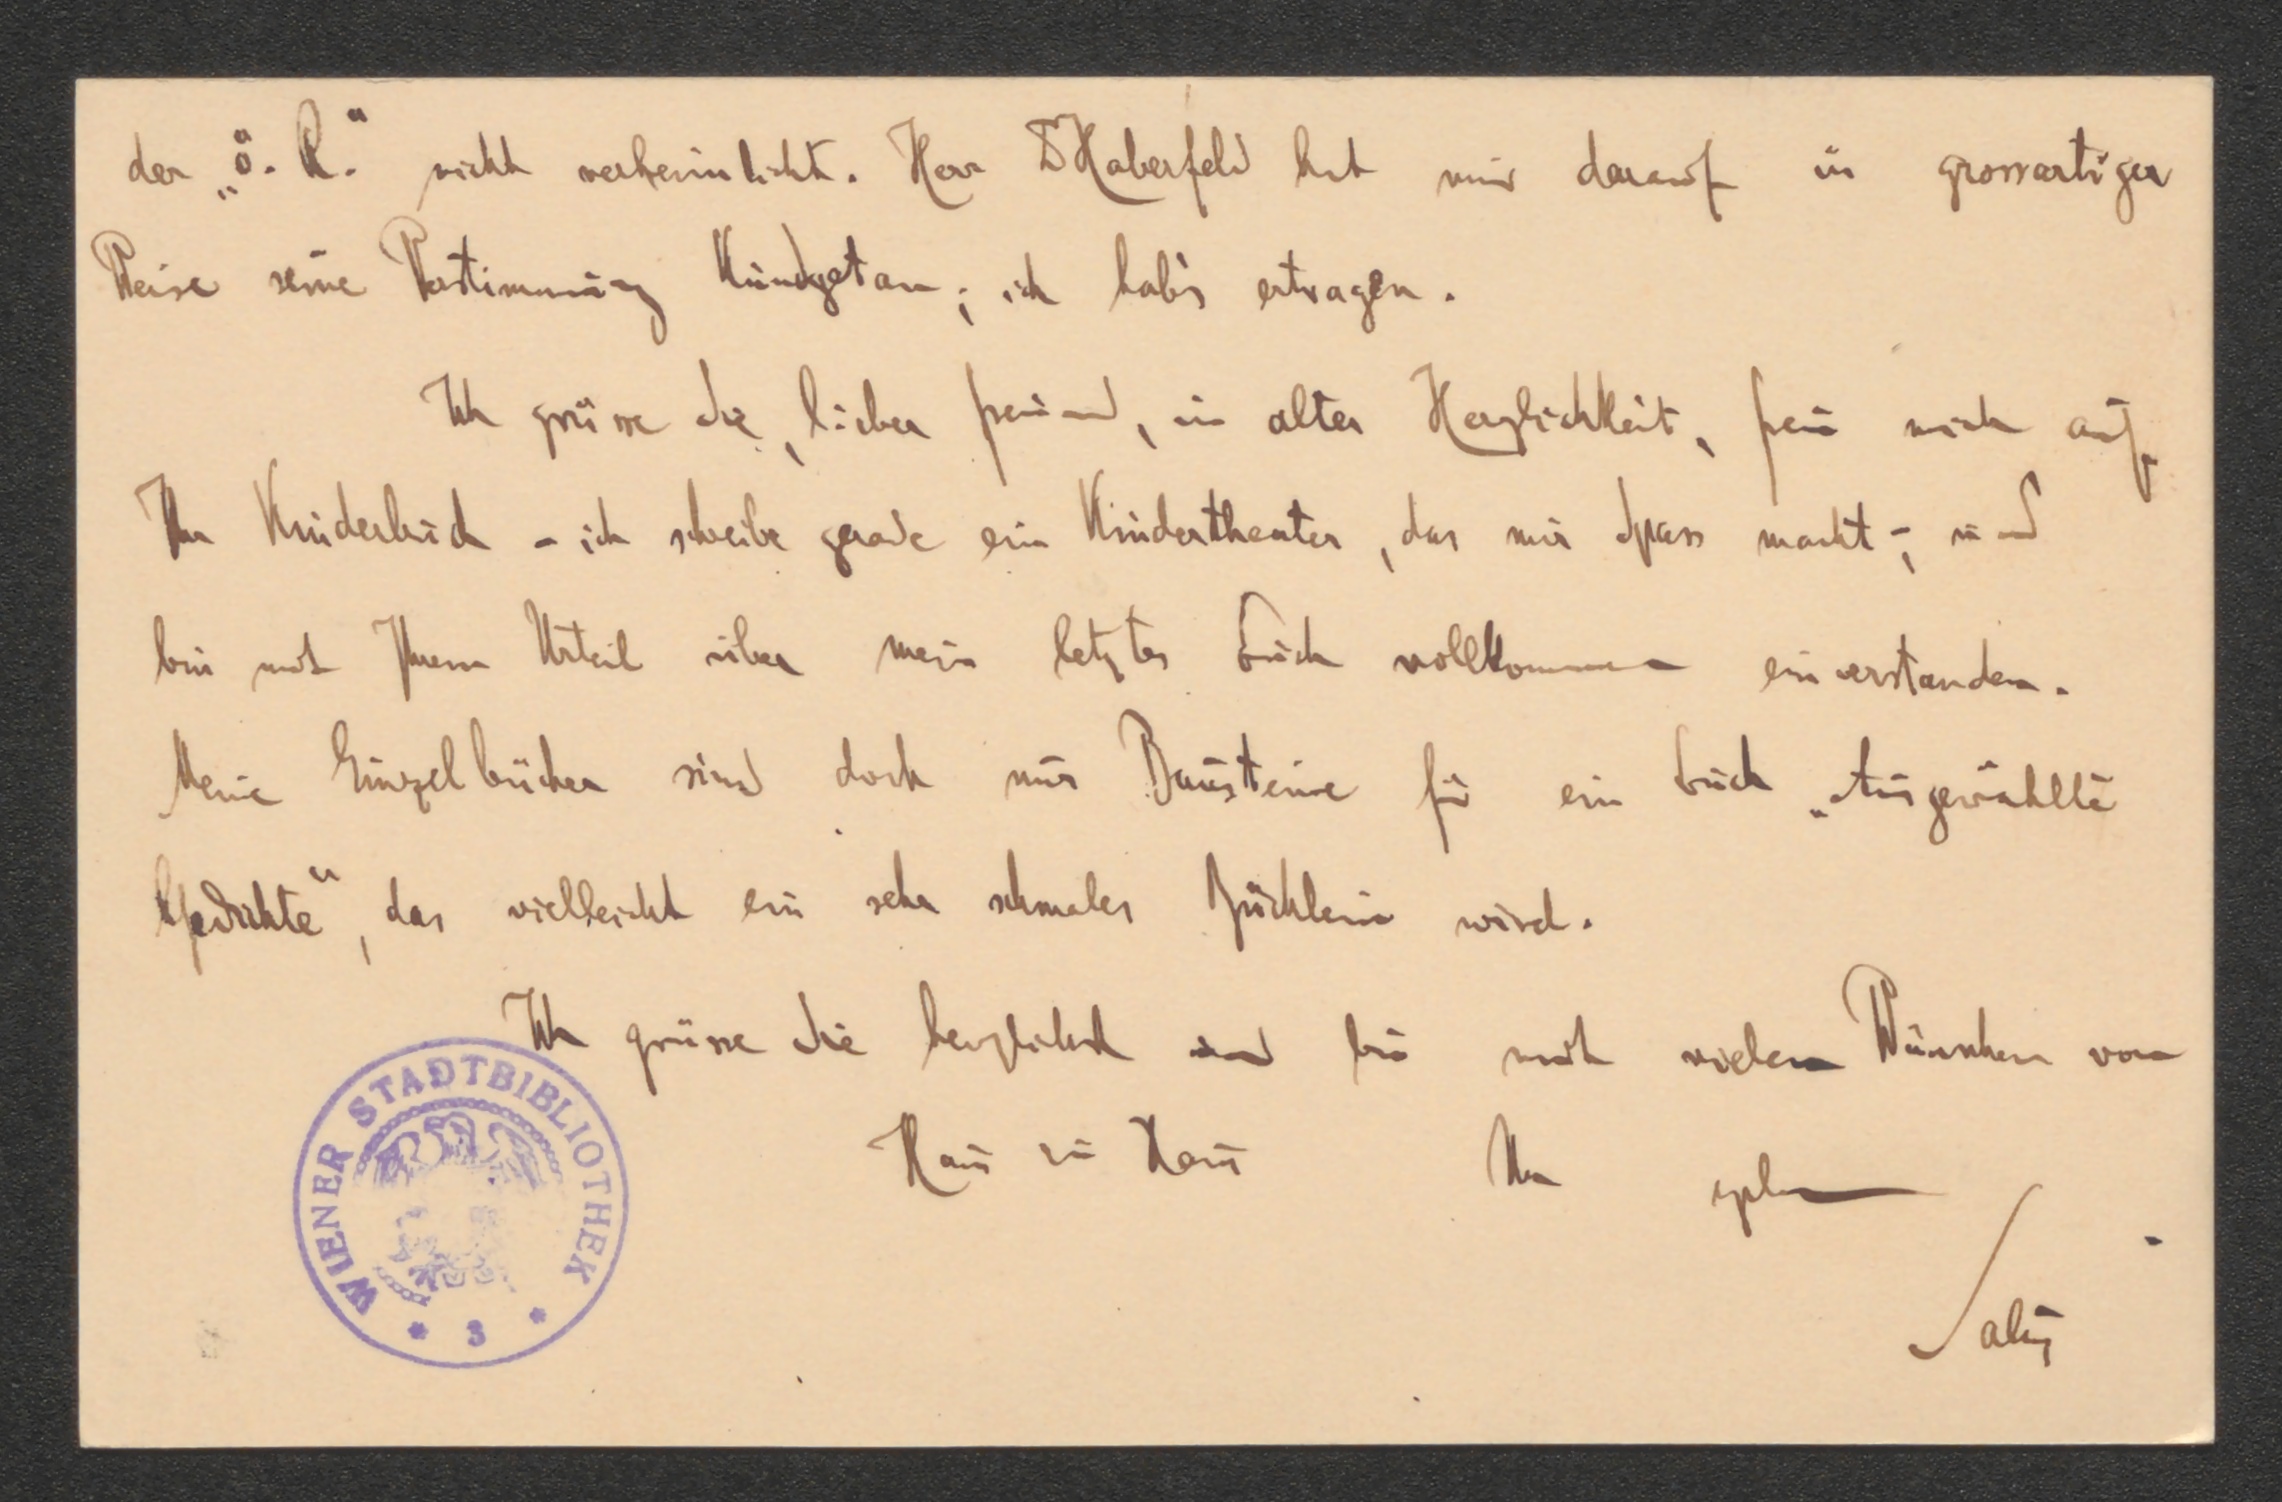 der „Ö. R." nicht verheimlicht. Herr Dr Haberfeld hat mir darauf in grossartiger
Weise seine Verstimmung kundgetan; ich hab's ertragen.
Ich grüsse Sie, lieber Freund, in alter Herzlichkeit, freu mich auf
Ihr Kinderbuch – ich schreibe gerade ein Kindertheater, das mir Spass macht –; und
bin mit Ihrem Urteil über mein letztes Buch vollkommen einverstanden.
Meine Einzelbücher sind doch nur Bausteine für ein Buch „Ausgewählte
Gedichte", das vielleicht ein sehr schmales Büchlein wird.
Ich grüsse Sie herzlichst und bin mit vielen Wünschen von
Haus zu Haus Ihr
Salus
WIENER STADTBIBLIOTHEK
* 3 *